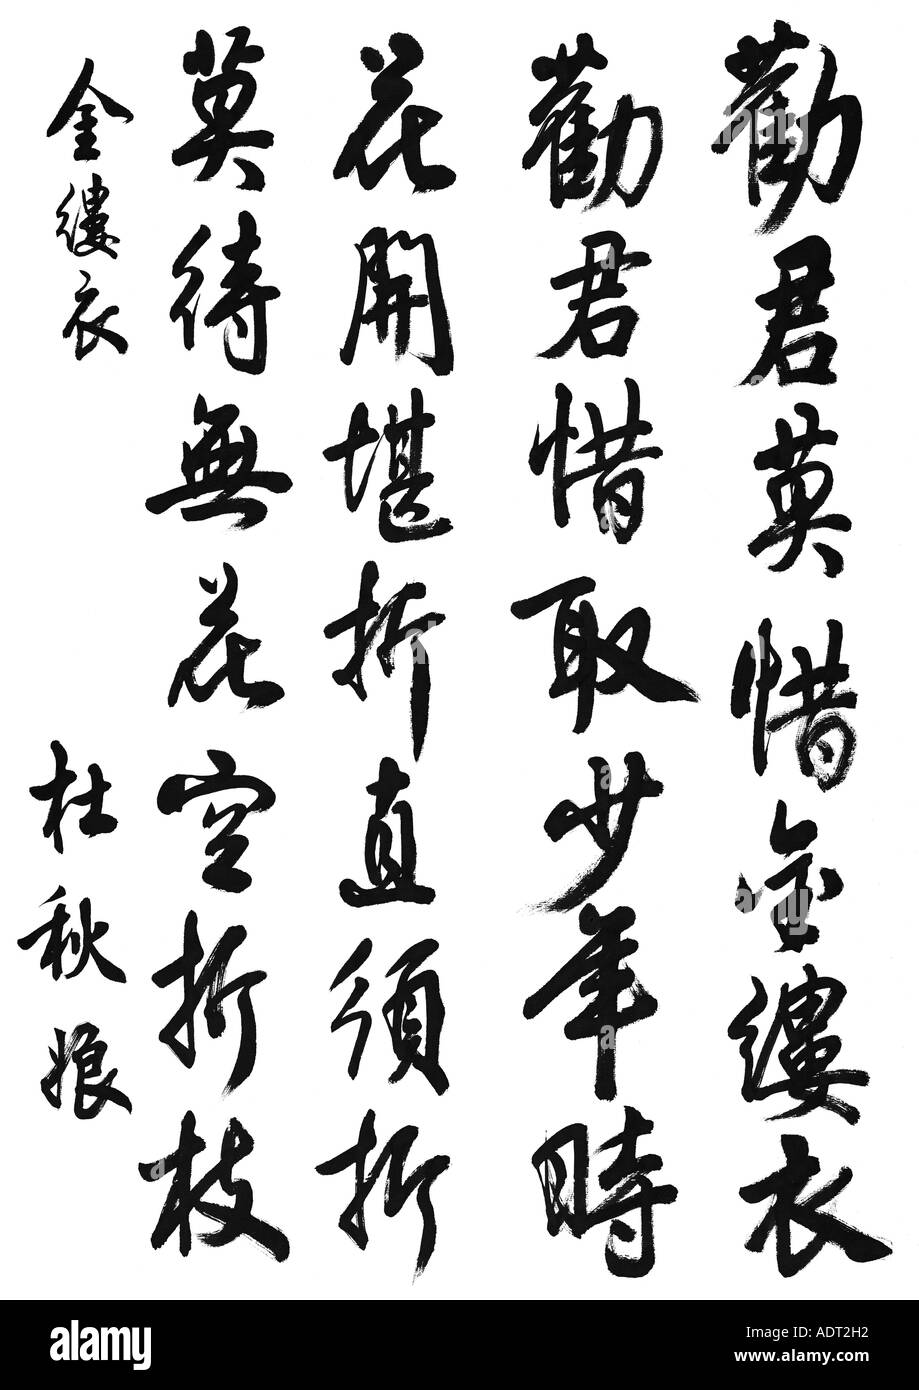 勸君莫惜金縷衣
勸君惜取少年時
花開堪折直須折
莫待無花空折枝
金縷衣
杜秋娘
alamy
Image ID: ADT2H2
www.alamy.com